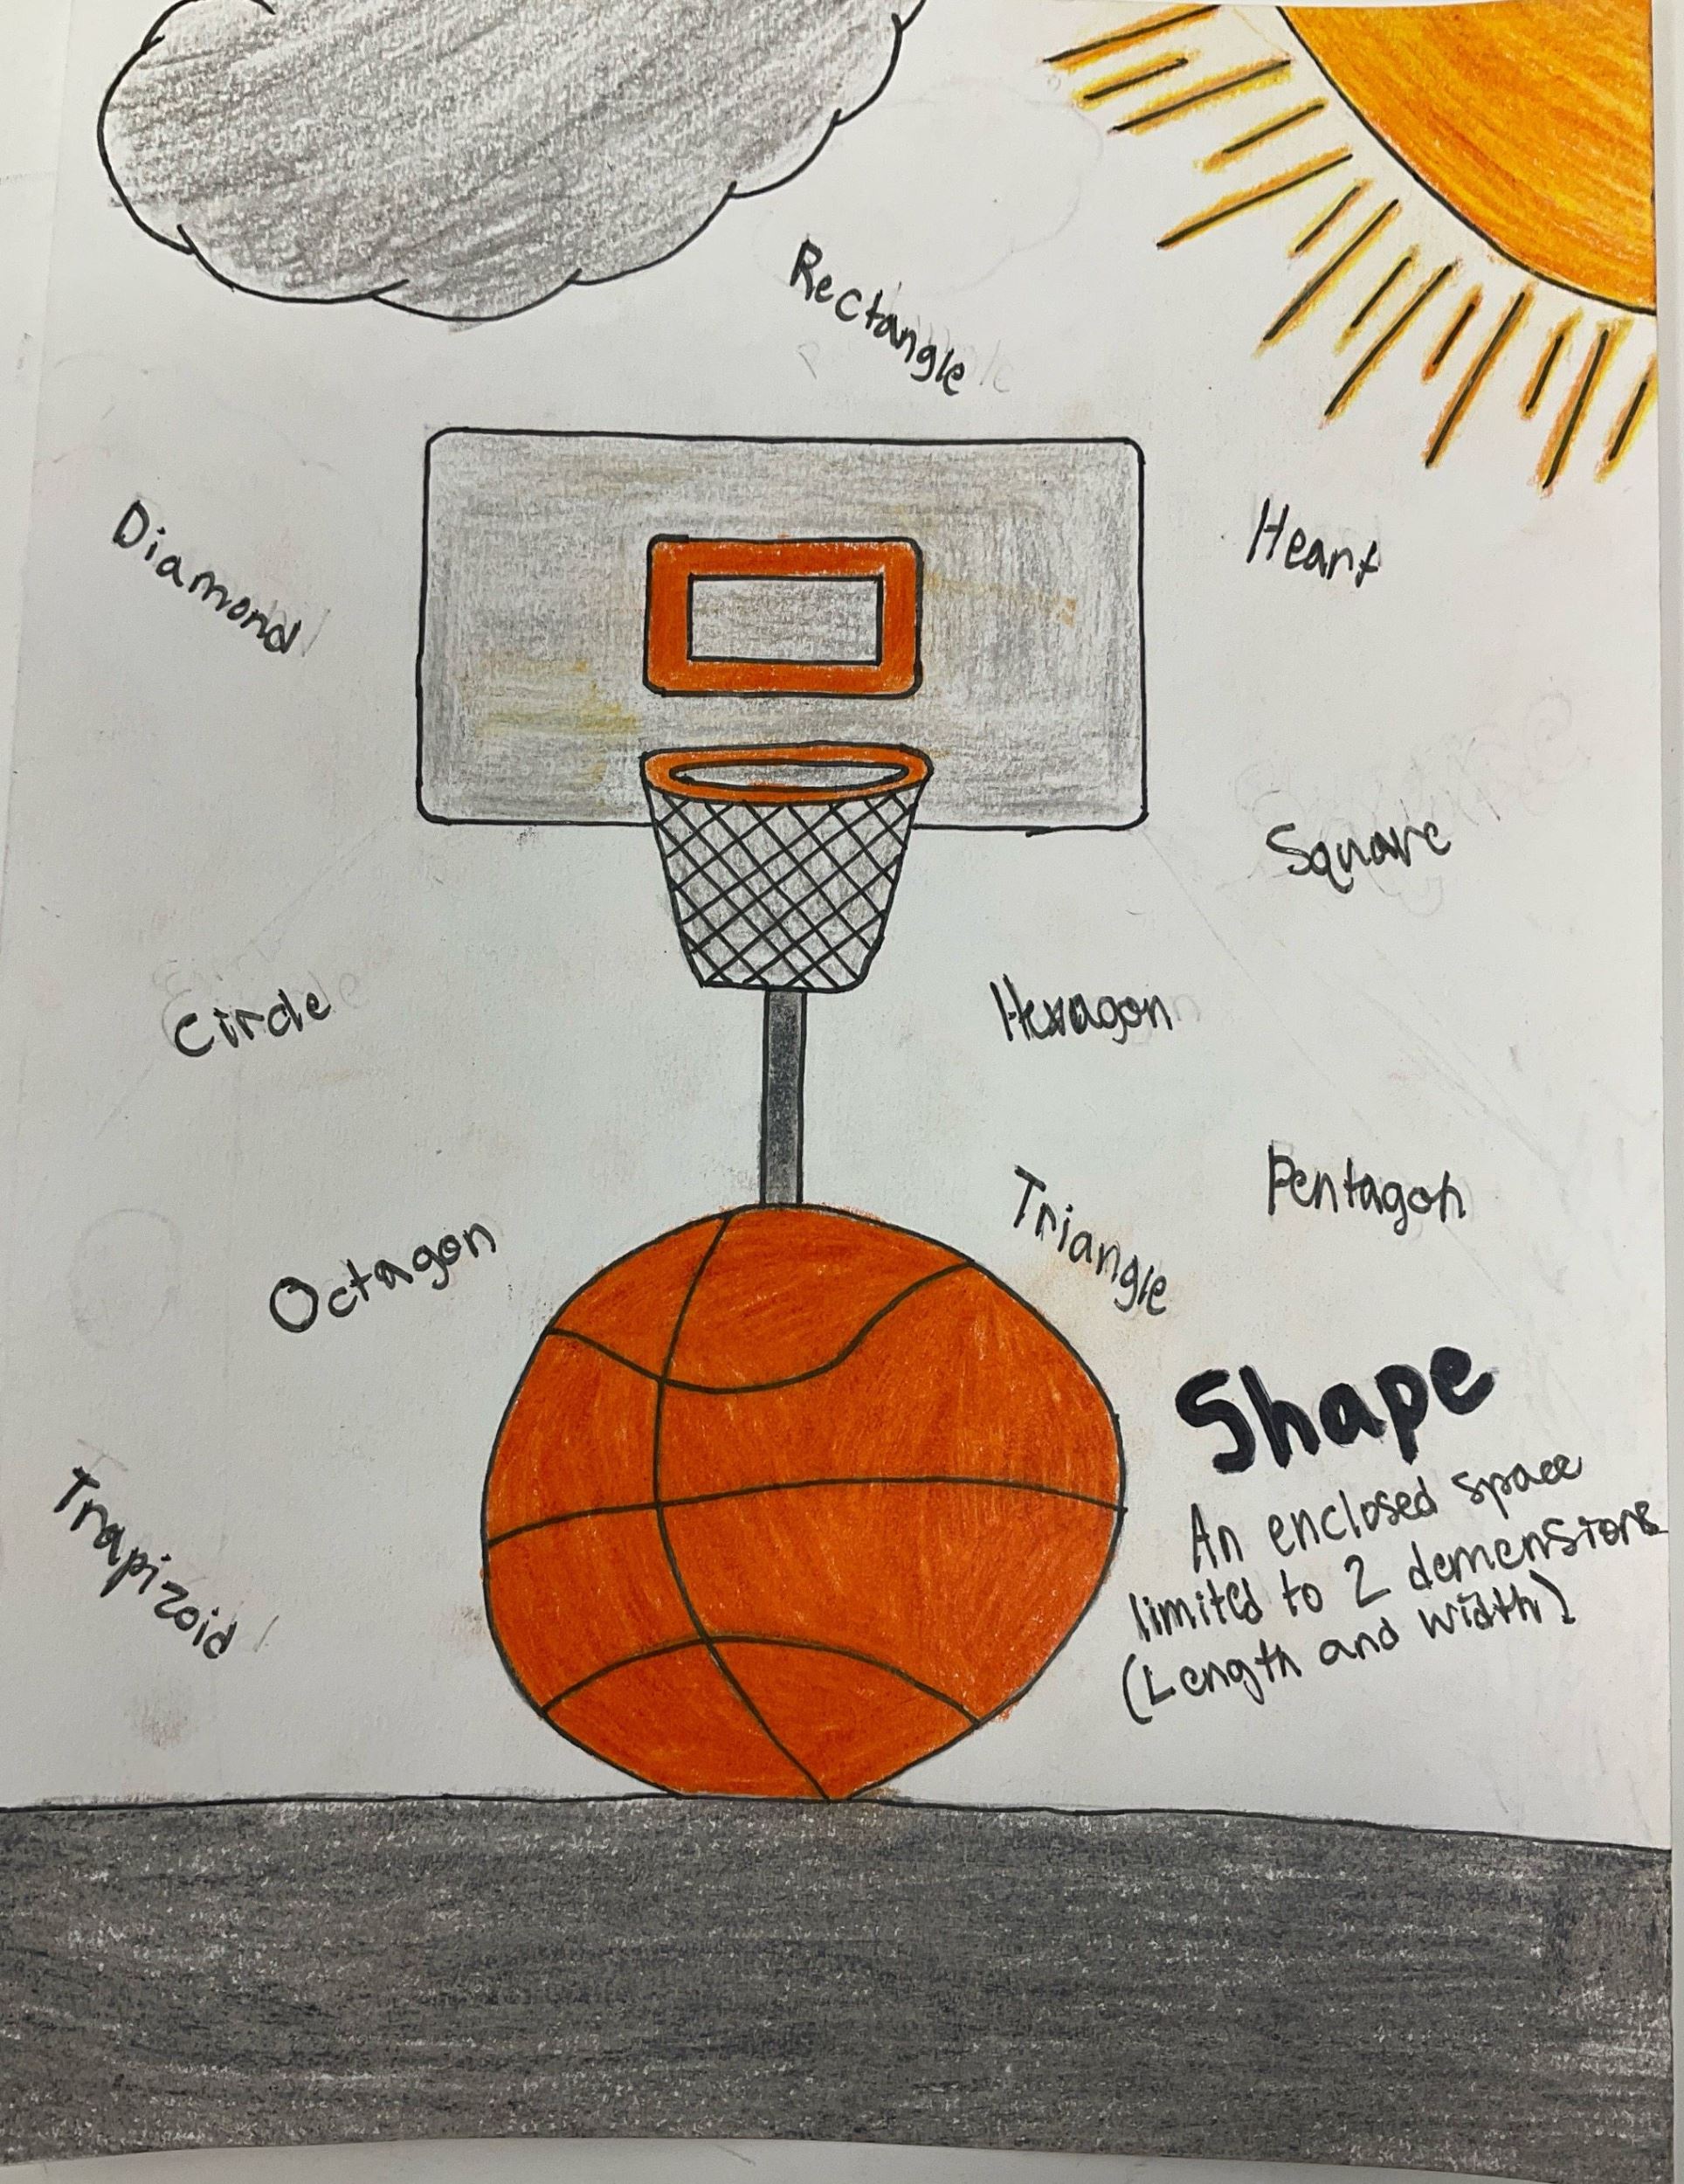 Rectangle
Diamond
Heart
Square
Circle
Hexagon
Pentagon
Triangle
Octagon
Shape
An enclosed space
limited to 2 demensions
(Length and width)
Trapizoid